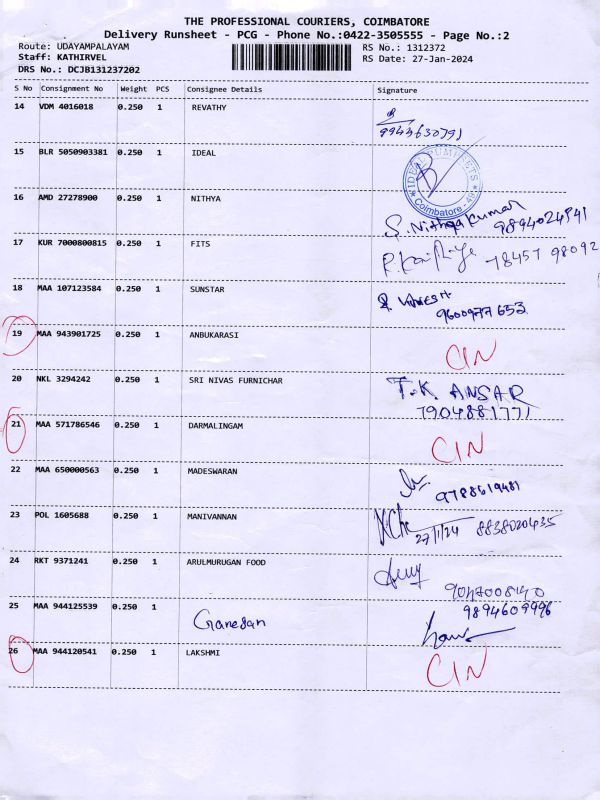 THE PROFESSIONAL COURIERS, COIMBATORE
Delivery Runsheet - PCG - Phone No.:0422-3505555 - Page No.:2
Route: UDAYAMPALAYAM RS No.: 1312372
Staff: KATHIRVEL RS Date: 27-Jan-2024
DRS No.: DCJB131237202
S No Consignment No Weight PCS Consignee Details Signature
14 VDM 4016018 0.250 1 REVATHY
9943630791
15 BLR 5050903381 0.250 1 IDEAL
IDEAL PUMPSETS
Coimbatore
16 AMD 27278900 0.250 1 NITHYA
S. Nithya Kumar
17 KUR 7000800815 0.250 1 FITS
78457 98092
18 MAA 107123584 0.250 1 SUNSTAR
9600977653
19 MAA 943901725 0.250 1 ANBUKARASI
CIN
20 NKL 3294242 0.250 1 SRI NIVAS FURNICHAR T.K. ANSAR
7904881771
21 MAA 571786546 0.250 1 DARMALINGAM
CIN
22 MAA 650000563 0.250 1 MADESWARAN
9788619481
23 POL 1605688 0.250 1 MANIVANNAN
27/1/24 8838020435
24 RKT 9371241 0.250 1 ARULMURUGAN FOOD
25 MAA 944125539 0.250 1 9894609996
Ganesan
26 MAA 944120541 0.250 1 LAKSHMI
CIN